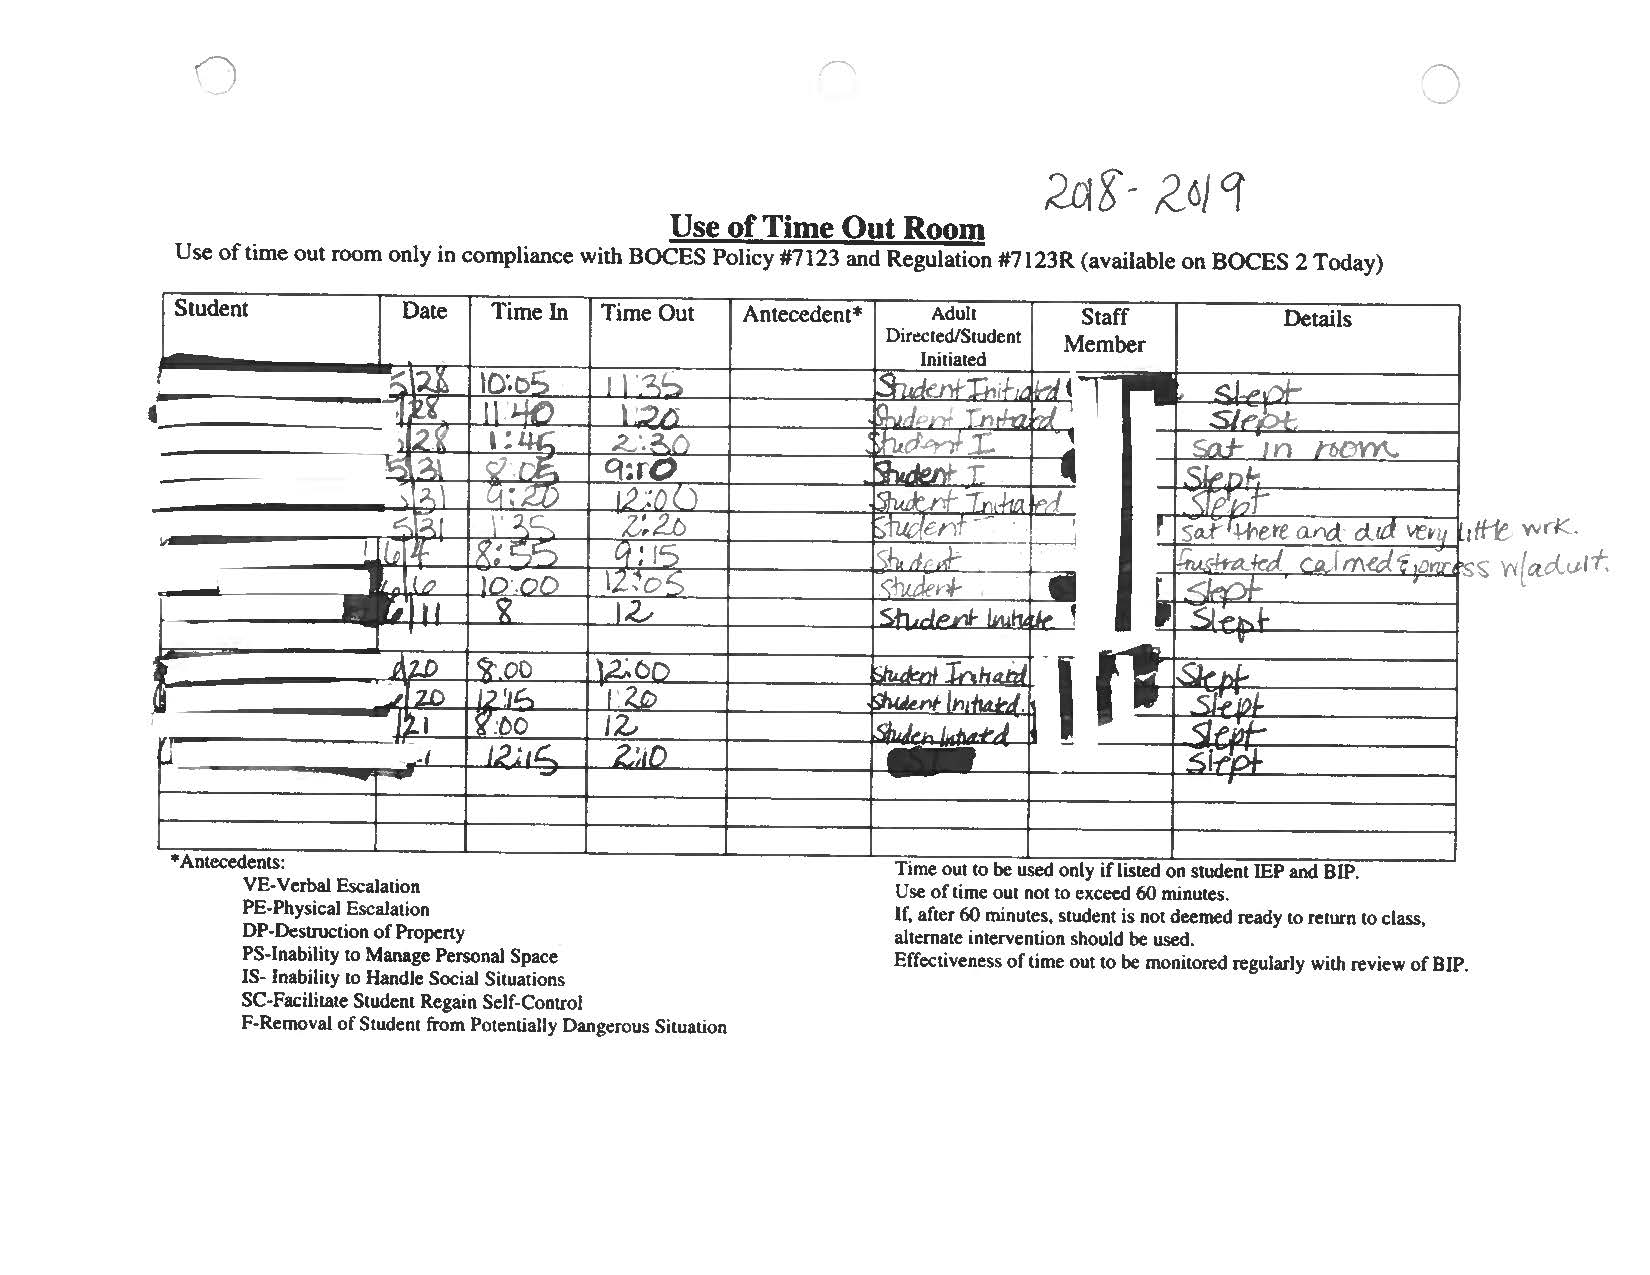 2018-2019
Use of Time Out Room
Use of time out room only in compliance with BOCES Policy #7123 and Regulation #7123R (available on BOCES 2 Today)
Student Date Time In Time Out Antecedent* Adult Directed/Student Initiated Staff Member Details
5/28 10:05 11:35 Student Initiated Slept
28 11:40 1:20 Student Initiated Slept
28 1:45 2:30 Student I sat in room
5/31 8:05 9:10 Student I Slept
31 9:20 12:00 Student Initiated Slept
5/31 1:35 2:20 Student sat there and did very little wrk.
6/4 8:55 9:15 Student frustrated, calmed & process w/adult.
6/6 10:00 12:05 Student Slept
6/11 8 12 Student Initiate Slept
20 8:00 12:00 Student Initiated Slept
20 12:15 1:20 Student Initiated. Slept
21 8:00 12 Studen Initiated Slept
12:15 2:10 Slept
*Antecedents:
VE-Verbal Escalation
PE-Physical Escalation
DP-Destruction of Property
PS-Inability to Manage Personal Space
IS- Inability to Handle Social Situations
SC-Facilitate Student Regain Self-Control
F-Removal of Student from Potentially Dangerous Situation
Time out to be used only if listed on student IEP and BIP.
Use of time out not to exceed 60 minutes.
If, after 60 minutes, student is not deemed ready to return to class,
alternate intervention should be used.
Effectiveness of time out to be monitored regularly with review of BIP.